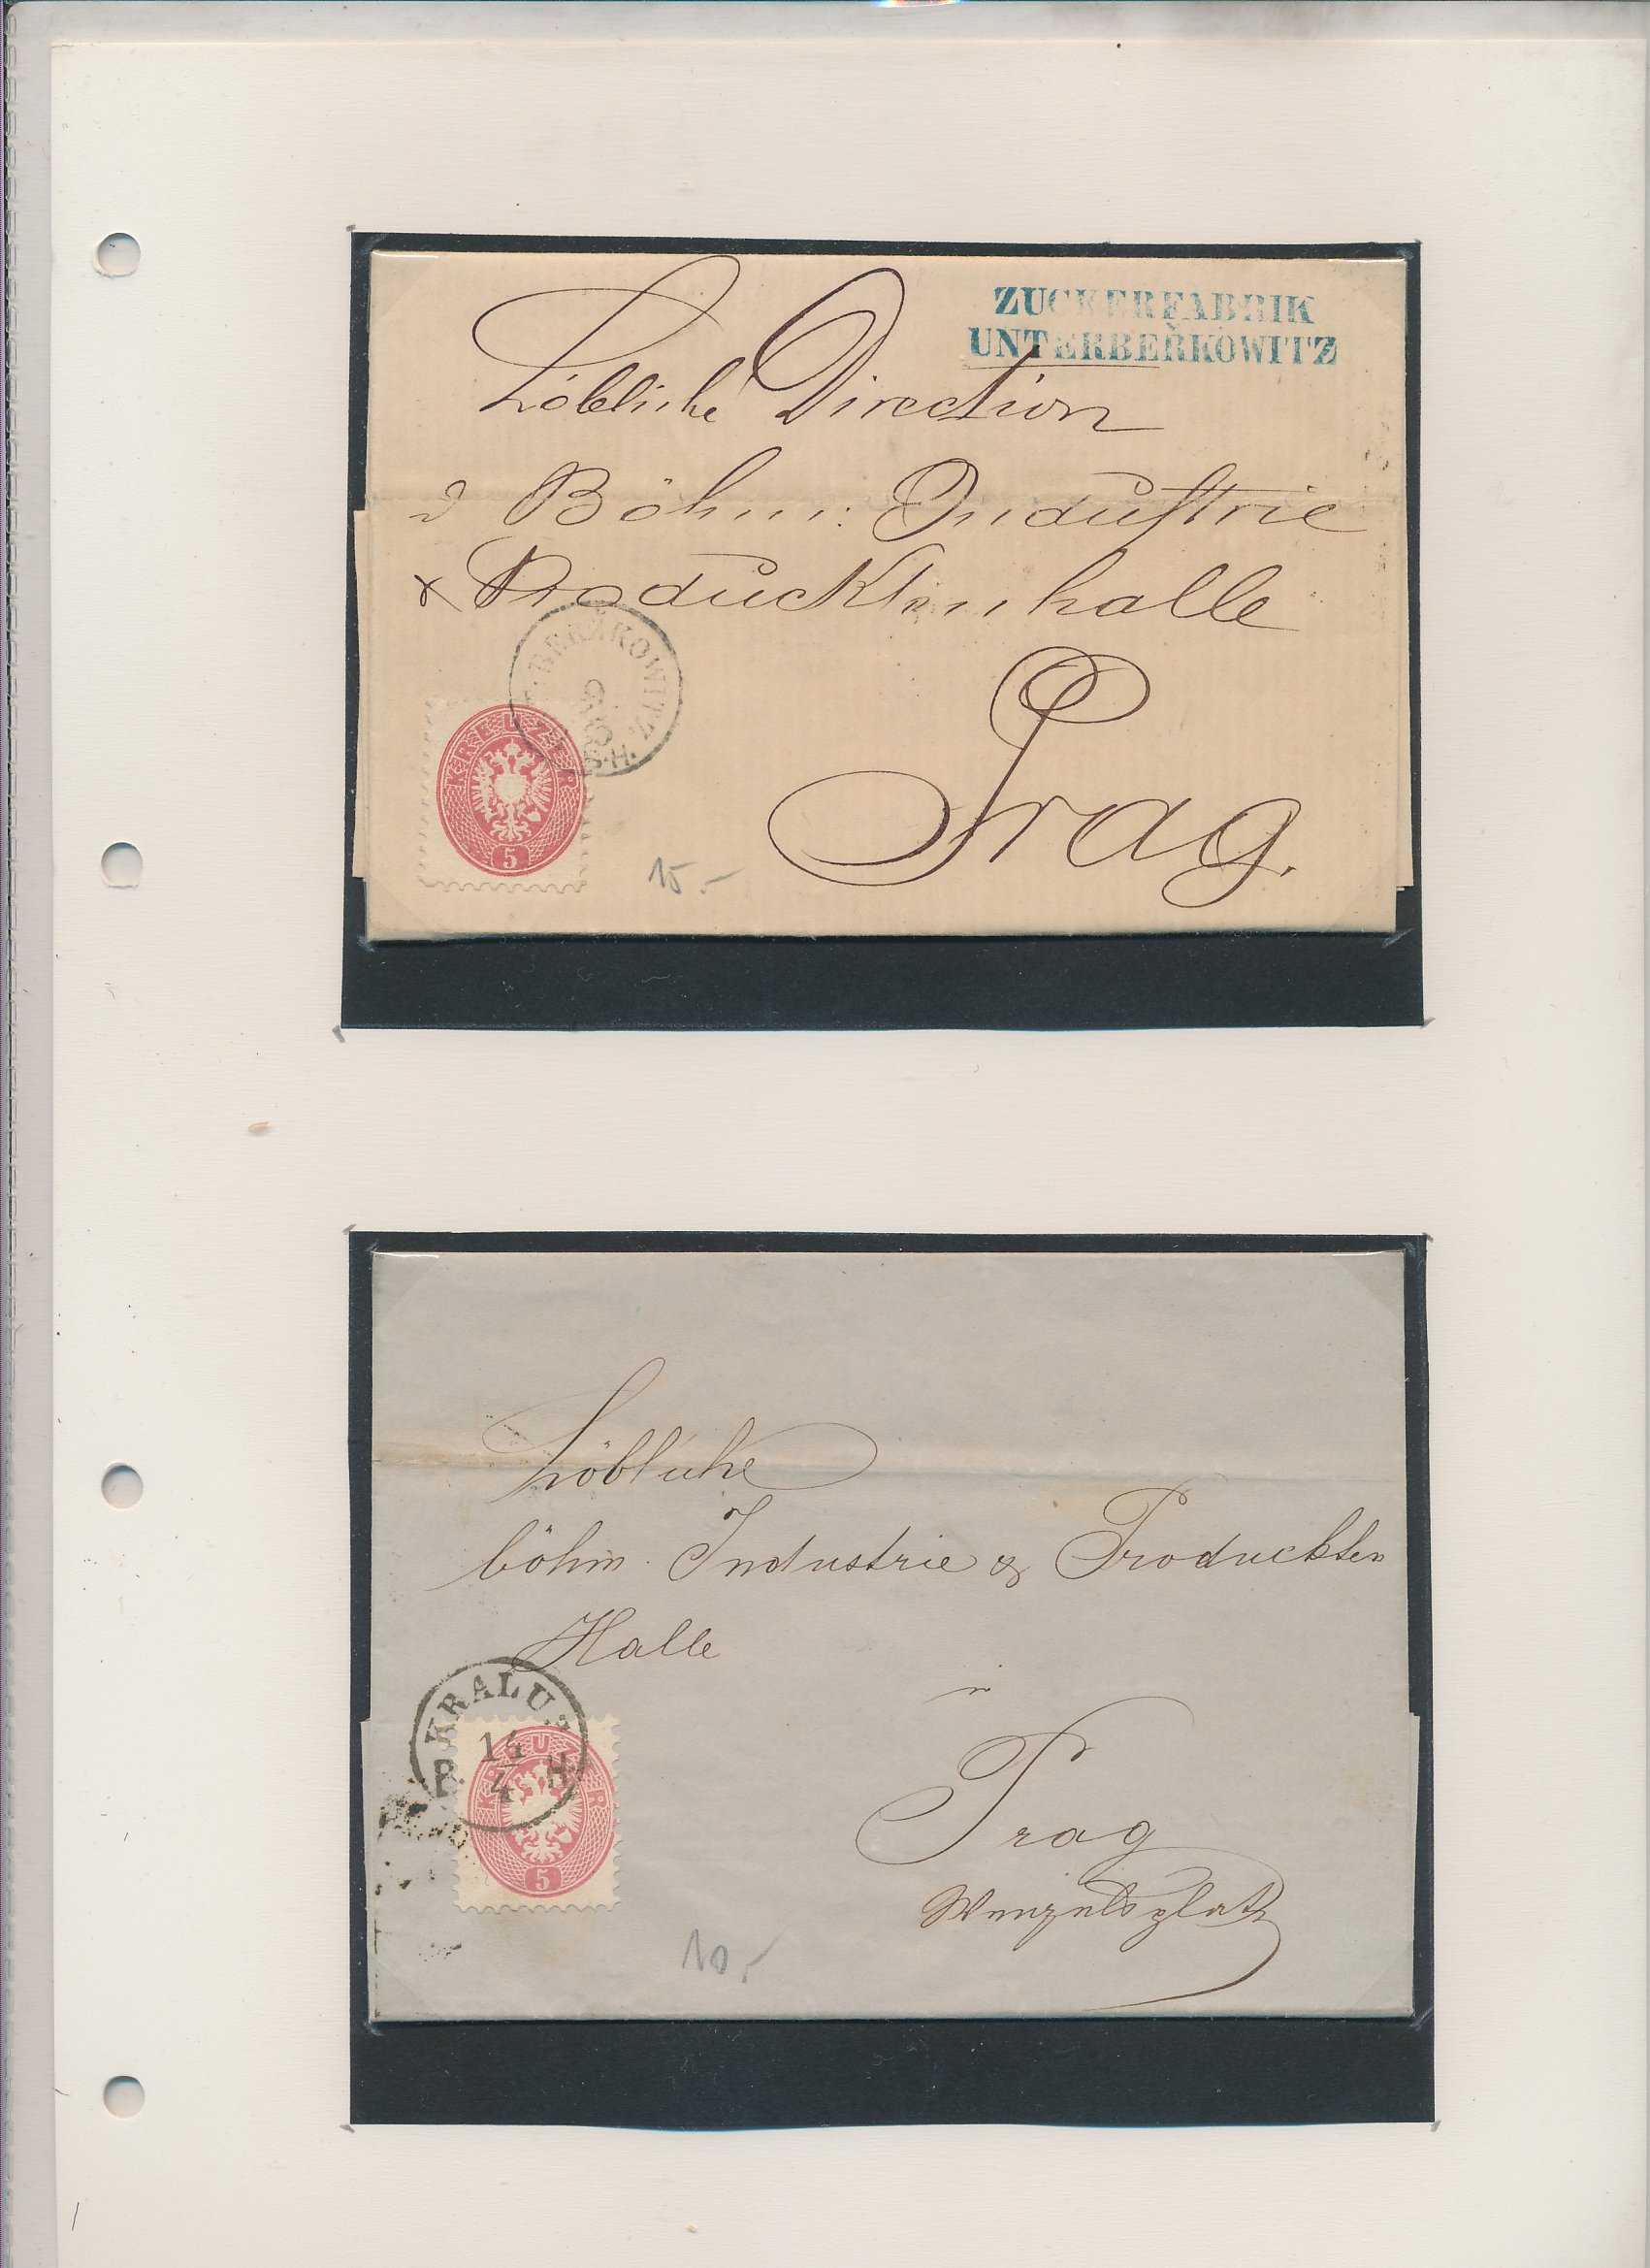 ZUCKERFABRIK
UNTERBEŘKOWITZ
Löbliche Direction
d Böhm: Industrie
& Producktenhalle
BEŘKOWITZ
Prag.
KREUZER
5
15.-
Löbliche
böhm. Industrie & Produckten
Halle
in
KRALUP
14
4
B. H.
Prag
Wenzelsplatz
KREUZER
5
10.-